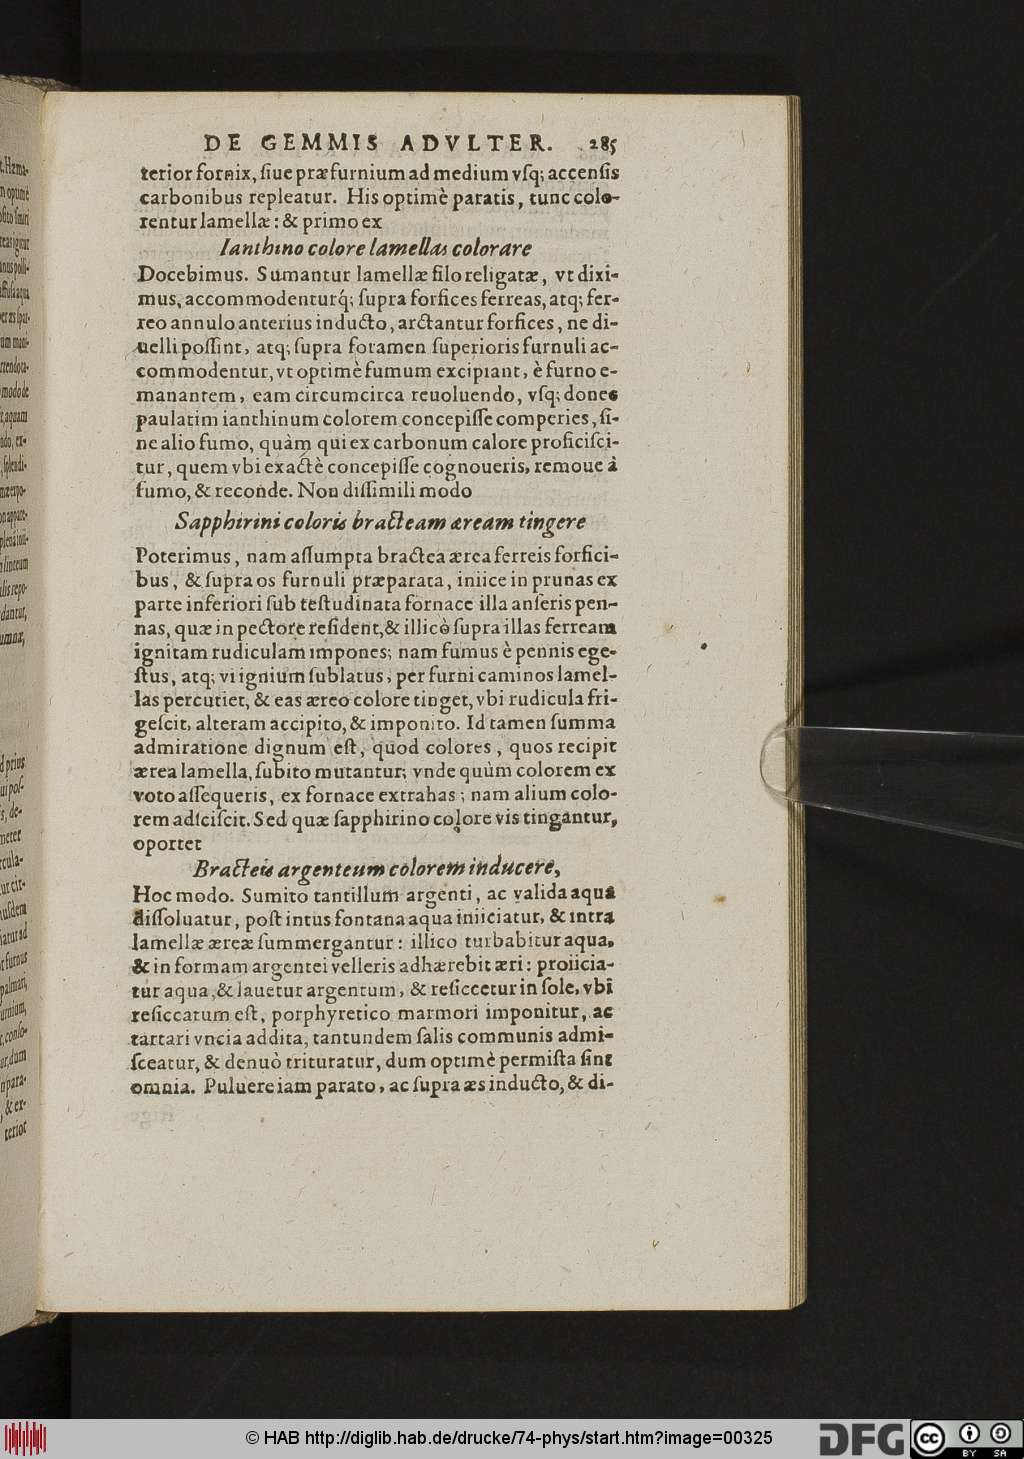 DE GEMMIS ADVLTER. 285
terior fornix, ſiue præfurnium ad medium vſq; accenſis
carbonibus repleatur. His optimè paratis, tunc colo-
rentur lamellæ: & primo ex
Ianthino colore lamellas colorare
Docebimus. Sumantur lamellæ filo religatæ, vt dixi-
mus, accommodenturq́; ſupra forfices ferreas, atq; fer-
reo annulo anterius inducto, arctantur forfices, ne di-
uelli poſſint, atq; ſupra foramen ſuperioris furnuli ac-
commodentur, vt optimè fumum excipiant, è furno e-
manantem, eam circumcirca reuoluendo, vſq; donec
paulatim ianthinum colorem concepiſſe comperies, ſi-
ne alio fumo, quàm qui ex carbonum calore proficiſci-
tur, quem vbi exactè concepiſſe cognoueris, remoue à
fumo, & reconde. Non diſſimili modo
Sapphirini coloris bracteam æream tingere
Poterimus, nam aſſumpta bractea ærea ferreis forfici-
bus, & ſupra os furnuli præparata, iniice in prunas ex
parte inferiori ſub teſtudinata fornace illa anſeris pen-
nas, quæ in pectore reſident, & illicò ſupra illas ferream
ignitam rudiculam impones; nam fumus è pennis ege-
ſtus, atq; vi ignium ſublatus, per furni caminos lamel-
las percutiet, & eas æreo colore tinget, vbi rudicula fri-
geſcit, alteram accipito, & imponito. Id tamen ſumma
admiratione dignum eſt, quod colores, quos recipit
ærea lamella, ſubito mutantur; vnde quùm colorem ex
voto aſſequeris, ex fornace extrahas; nam alium colo-
rem adſciſcit. Sed quæ ſapphirino colore vis tingantur,
oportet
Bracteis argenteum colorem inducere,
Hoc modo. Sumito tantillum argenti, ac valida aqua
diſſoluatur, poſt intus fontana aqua iniiciatur, & intra
lamellæ æreæ ſummergantur: illico turbabitur aqua,
& in formam argentei velleris adhærebit æri: proiicia-
tur aqua, & lauetur argentum, & reſiccetur in ſole, vbi
reſiccatum eſt, porphyretico marmori imponitur, ac
tartari vncia addita, tantundem ſalis communis admi-
ſceatur, & denuò trituratur, dum optimè permiſta ſint
omnia. Puluere iam parato, ac ſupra æs inducto, & di-
© HAB http://diglib.hab.de/drucke/74-phys/start.htm?image=00325
DFG
cc BY SA